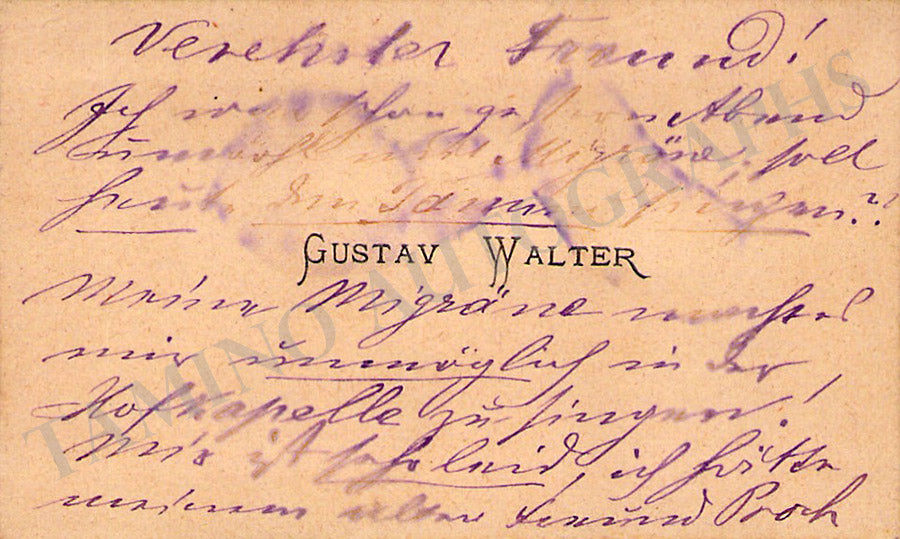 Verehrter Freund!
Ich war schon gestern Abend
unwohl Migräne, soll
heute den Tamino singen??
GUSTAV WALTER
Meine Migräne macht es
mir unmöglich in der
Hofkapelle zu singen!
Mir ist sehr leid, ich hätte
meinem alten Freund Proch
TAMINO AUTOGRAPHS